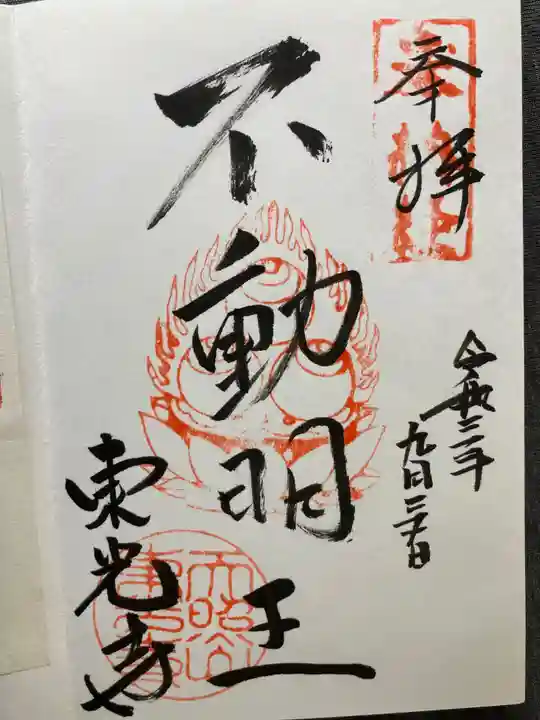 奉拝
令和二年
九月二十五日
不動明王
東光寺